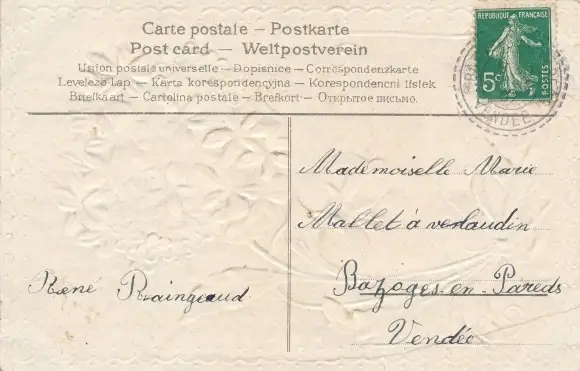 Carte postale — Postkarte
Post card — Weltpostverein
Union postale universelle — Dopisnice — Correspondenzkarte
Levelező Lap — Karta korespondencyjna — Korespondencni listek
Briefkaart — Cartolina postale — Brefkort — Открытое письмо.
REPUBLIQUE FRANÇAISE
5c
POSTES
VENDEE
Mademoiselle Marie
Mallet à verlaudin
Bazoges-en-Pareds
Vendée
René Raingeaud